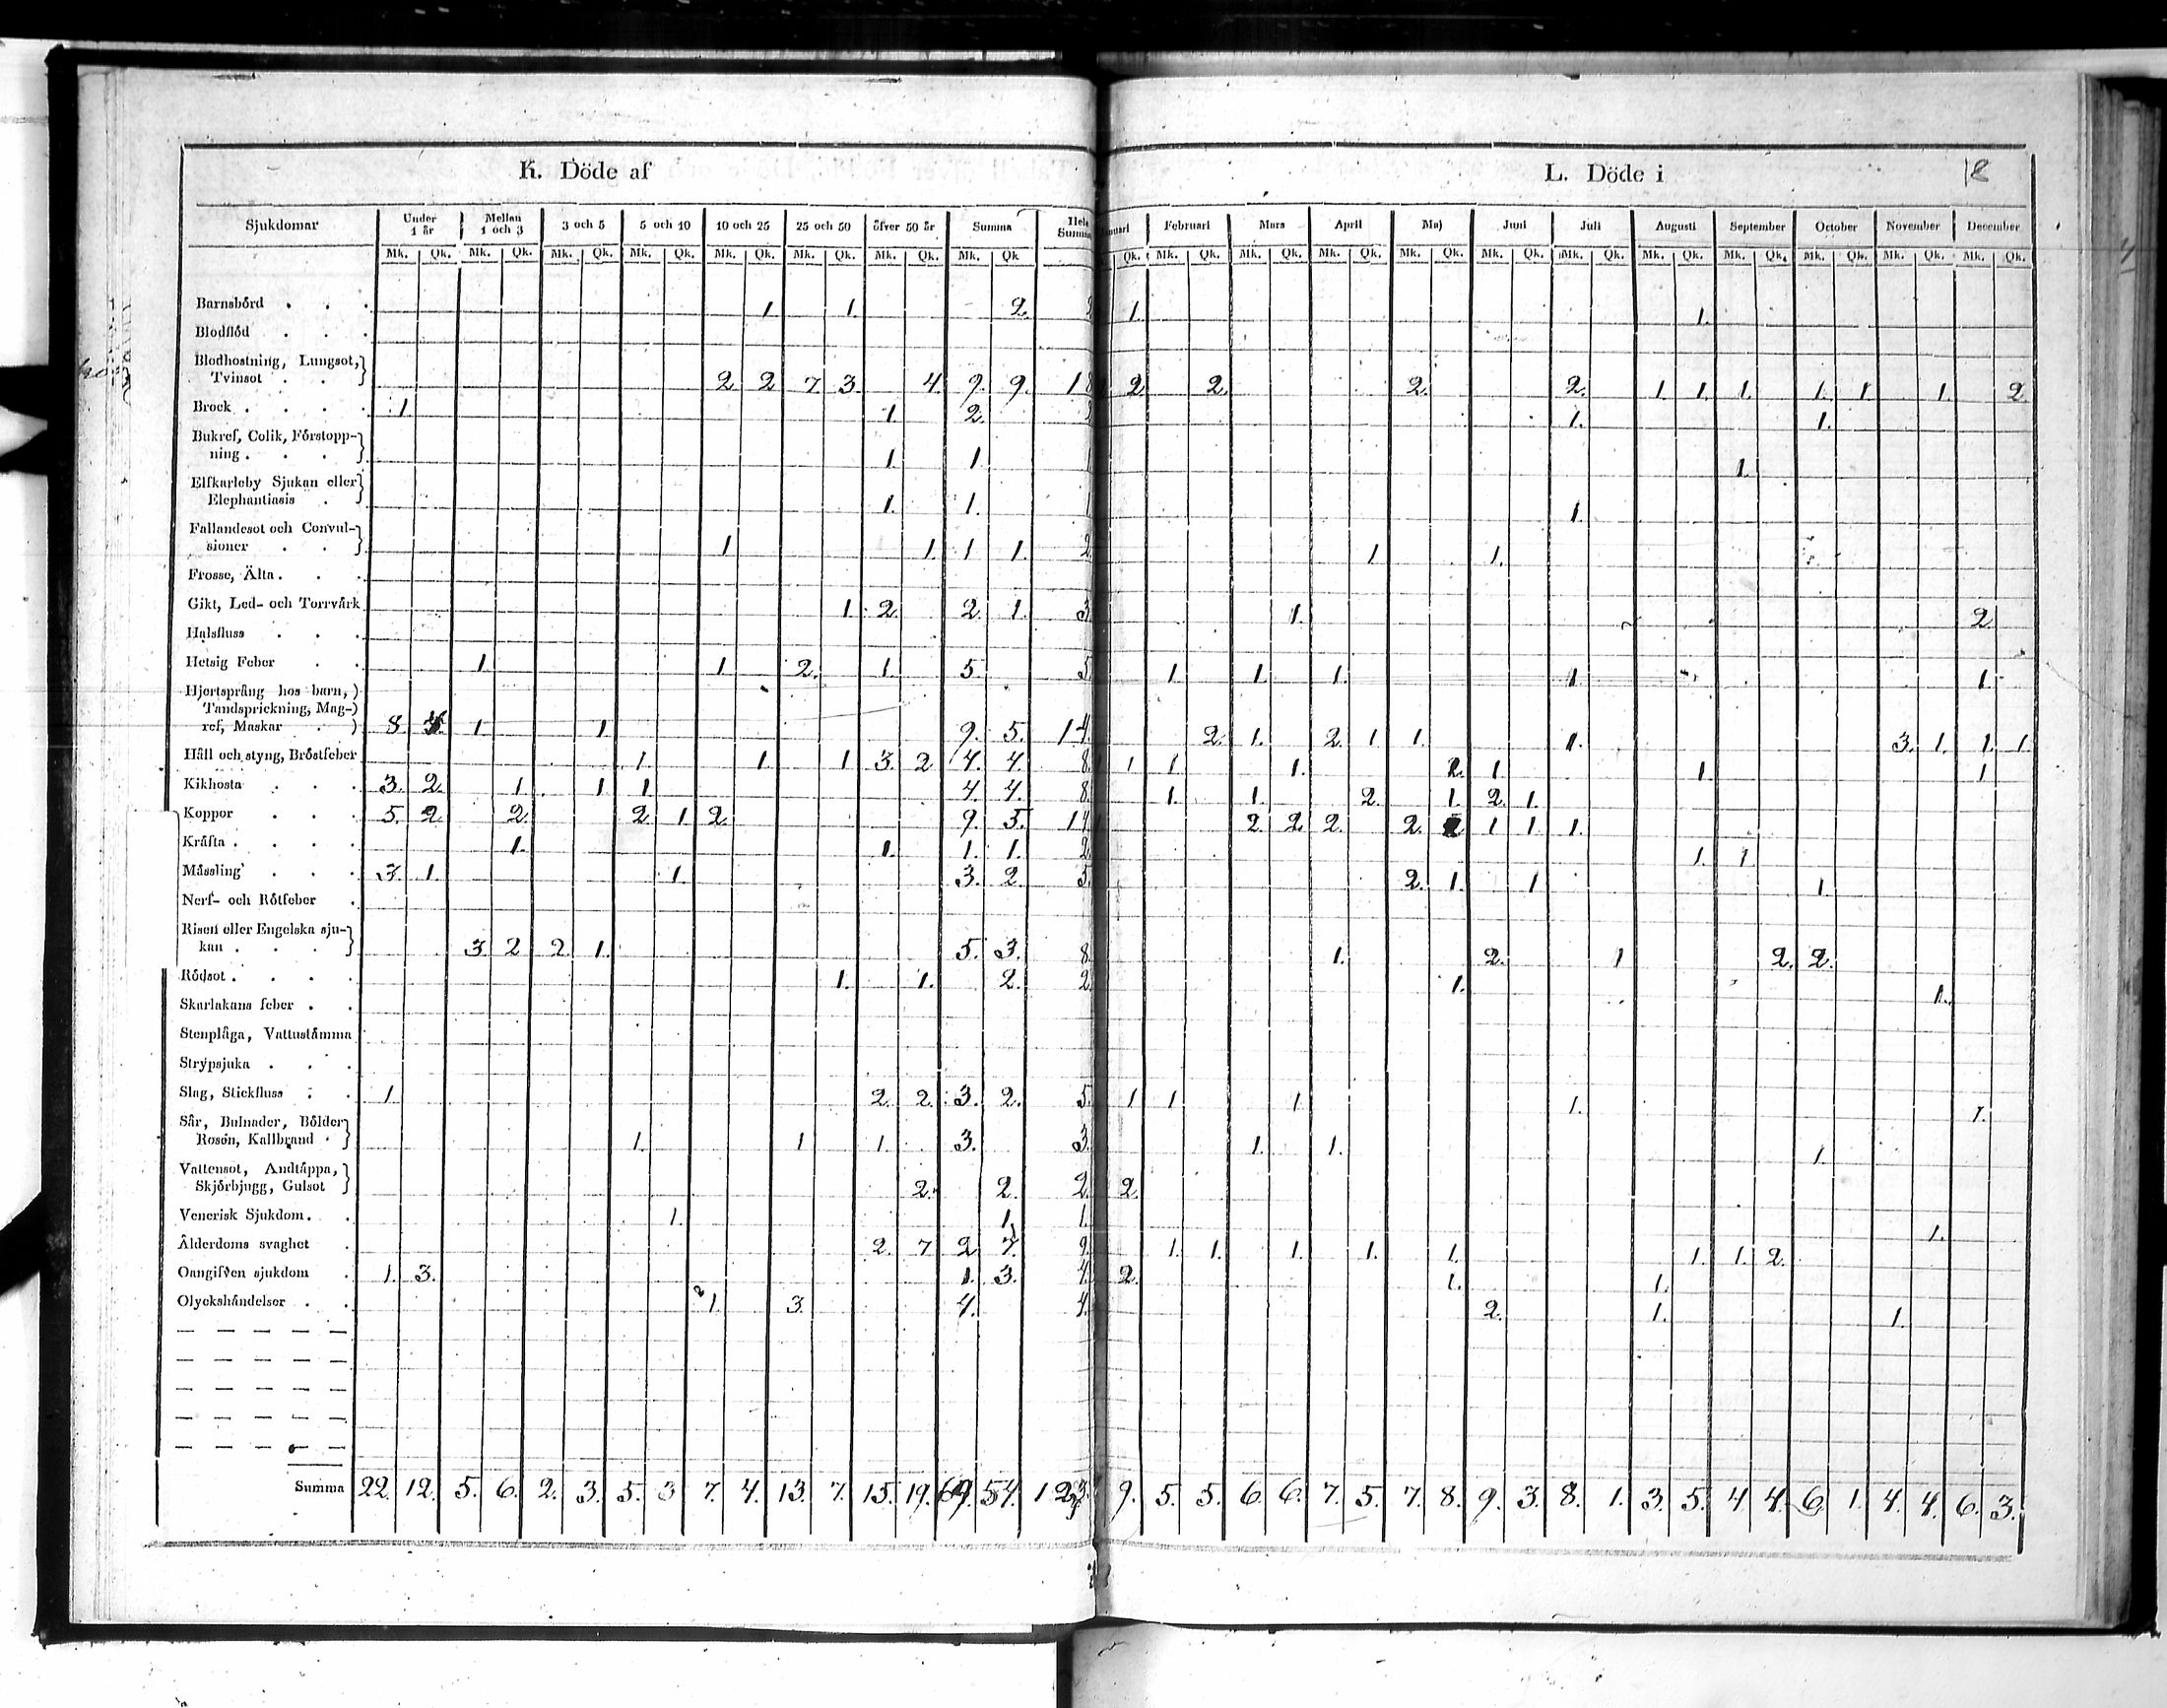 K. Döde af
L. Döde i
Sjukdomar Under 1 år Mellan 1 och 3 3 och 5 5 och 10 10 och 25 25 och 50 öfver 50 år Summa Hela Summa
Februari Mars April Maj Juni Juli Augusti September October November December
Mk. Qk. Mk. Qk. Mk. Qk. Mk. Qk. Mk. Qk. Mk. Qk. Mk. Qk. Mk. Qk
Qk. Mk. Qk. Mk. Qk. Mk. Qk. Mk. Qk. Mk. Qk. Mk. Qk. Mk. Qk. Mk. Qk. Mk. Qk. Mk. Qk. Mk. Qk.
Barnsbörd 1. 1. 2. 2 1. 1.
Blodflöd
Blodhostning, Lungsot,
Tvinsot 2 2 7. 3. 4. 9. 9. 18 2. 2. 2. 2. 1. 1. 1. 1. 1. 1. 2.
Brock 1. 1. 2. 2 1. 1.
Bukref, Colik, Förstopp-
ning 1. 1. 1 1.
Elfkarleby Sjukan eller
Elephantiasis 1. 1. 1 1.
Fallandesot och Convul-
sioner 1 1. 1 1. 2 1 1.
Frosse, Älta
Gikt, Led- och Torrvärk 1. 2. 2. 1. 3 1. 2.
Halsfluss
Hetsig Feber 1. 1. 2. 1. 5. 5. 1. 1. 1. 1. 1.
Hjertsprång hos barn,
Tandsprickning, Mag-
ref, Maskar 8. 4. 1. 1. 9. 5. 14. 2. 1. 2. 1 1. 1. 3. 1. 1. 1.
Håll och styng, Bröstfeber 1. 1. 1 3. 2. 4. 4. 8. 1 1. 1. 2. 1. 1. 1.
Kikhosta 3. 2. 1. 1. 1. 4. 4. 8. 1. 1. 2. 1. 2. 1.
Koppor 5. 2. 2. 2. 1. 2. 9. 5. 14 2. 2. 2. 2. 2 1 1. 1.
Kräfta 1. 1. 1. 1. 2. 1. 1.
Mässling 3. 1. 1. 3. 2. 5. 2. 1. 1 1.
Nerf- och Rötfeber
Risen eller Engelska sju-
kan 3. 2 2. 1. 5. 3. 8. 1. 2. 1 2. 2.
Rödsot 1. 1. 2. 2. 1. 1.
Skarlakans feber
Stenplåga, Vattustämma
Strypsjuka
Slag, Stickfluss 1. 2. 2. 3. 2. 5. 1 1 1 1. 1.
Sår, Bulnader, Bölder
Rosen, Kallbrand 1. 1 1. 3. 3. 1. 1. 1.
Vattensot, Andtäppa,
Skjörbjugg, Gulsot 2. 2. 2. 2.
Venerisk Sjukdom 1. 1. 1. 1.
Ålderdoms svaghet 2. 7 2. 7. 9. 1. 1. 1. 1. 1. 1. 1. 2.
Oangifven sjukdom 1. 3. 1. 3. 4. 2. 1. 1.
Olyckshändelser 1. 3. 4. 4. 2. 1. 1.
Summa 22. 12. 5. 6. 2. 3. 5. 3 7. 4. 13. 7. 15. 19. 69. 54. 123. 9. 5. 5. 6. 6. 7. 5. 7. 8. 9. 3. 8. 1. 3. 5. 4 4. 6. 1. 4. 4. 6. 3.